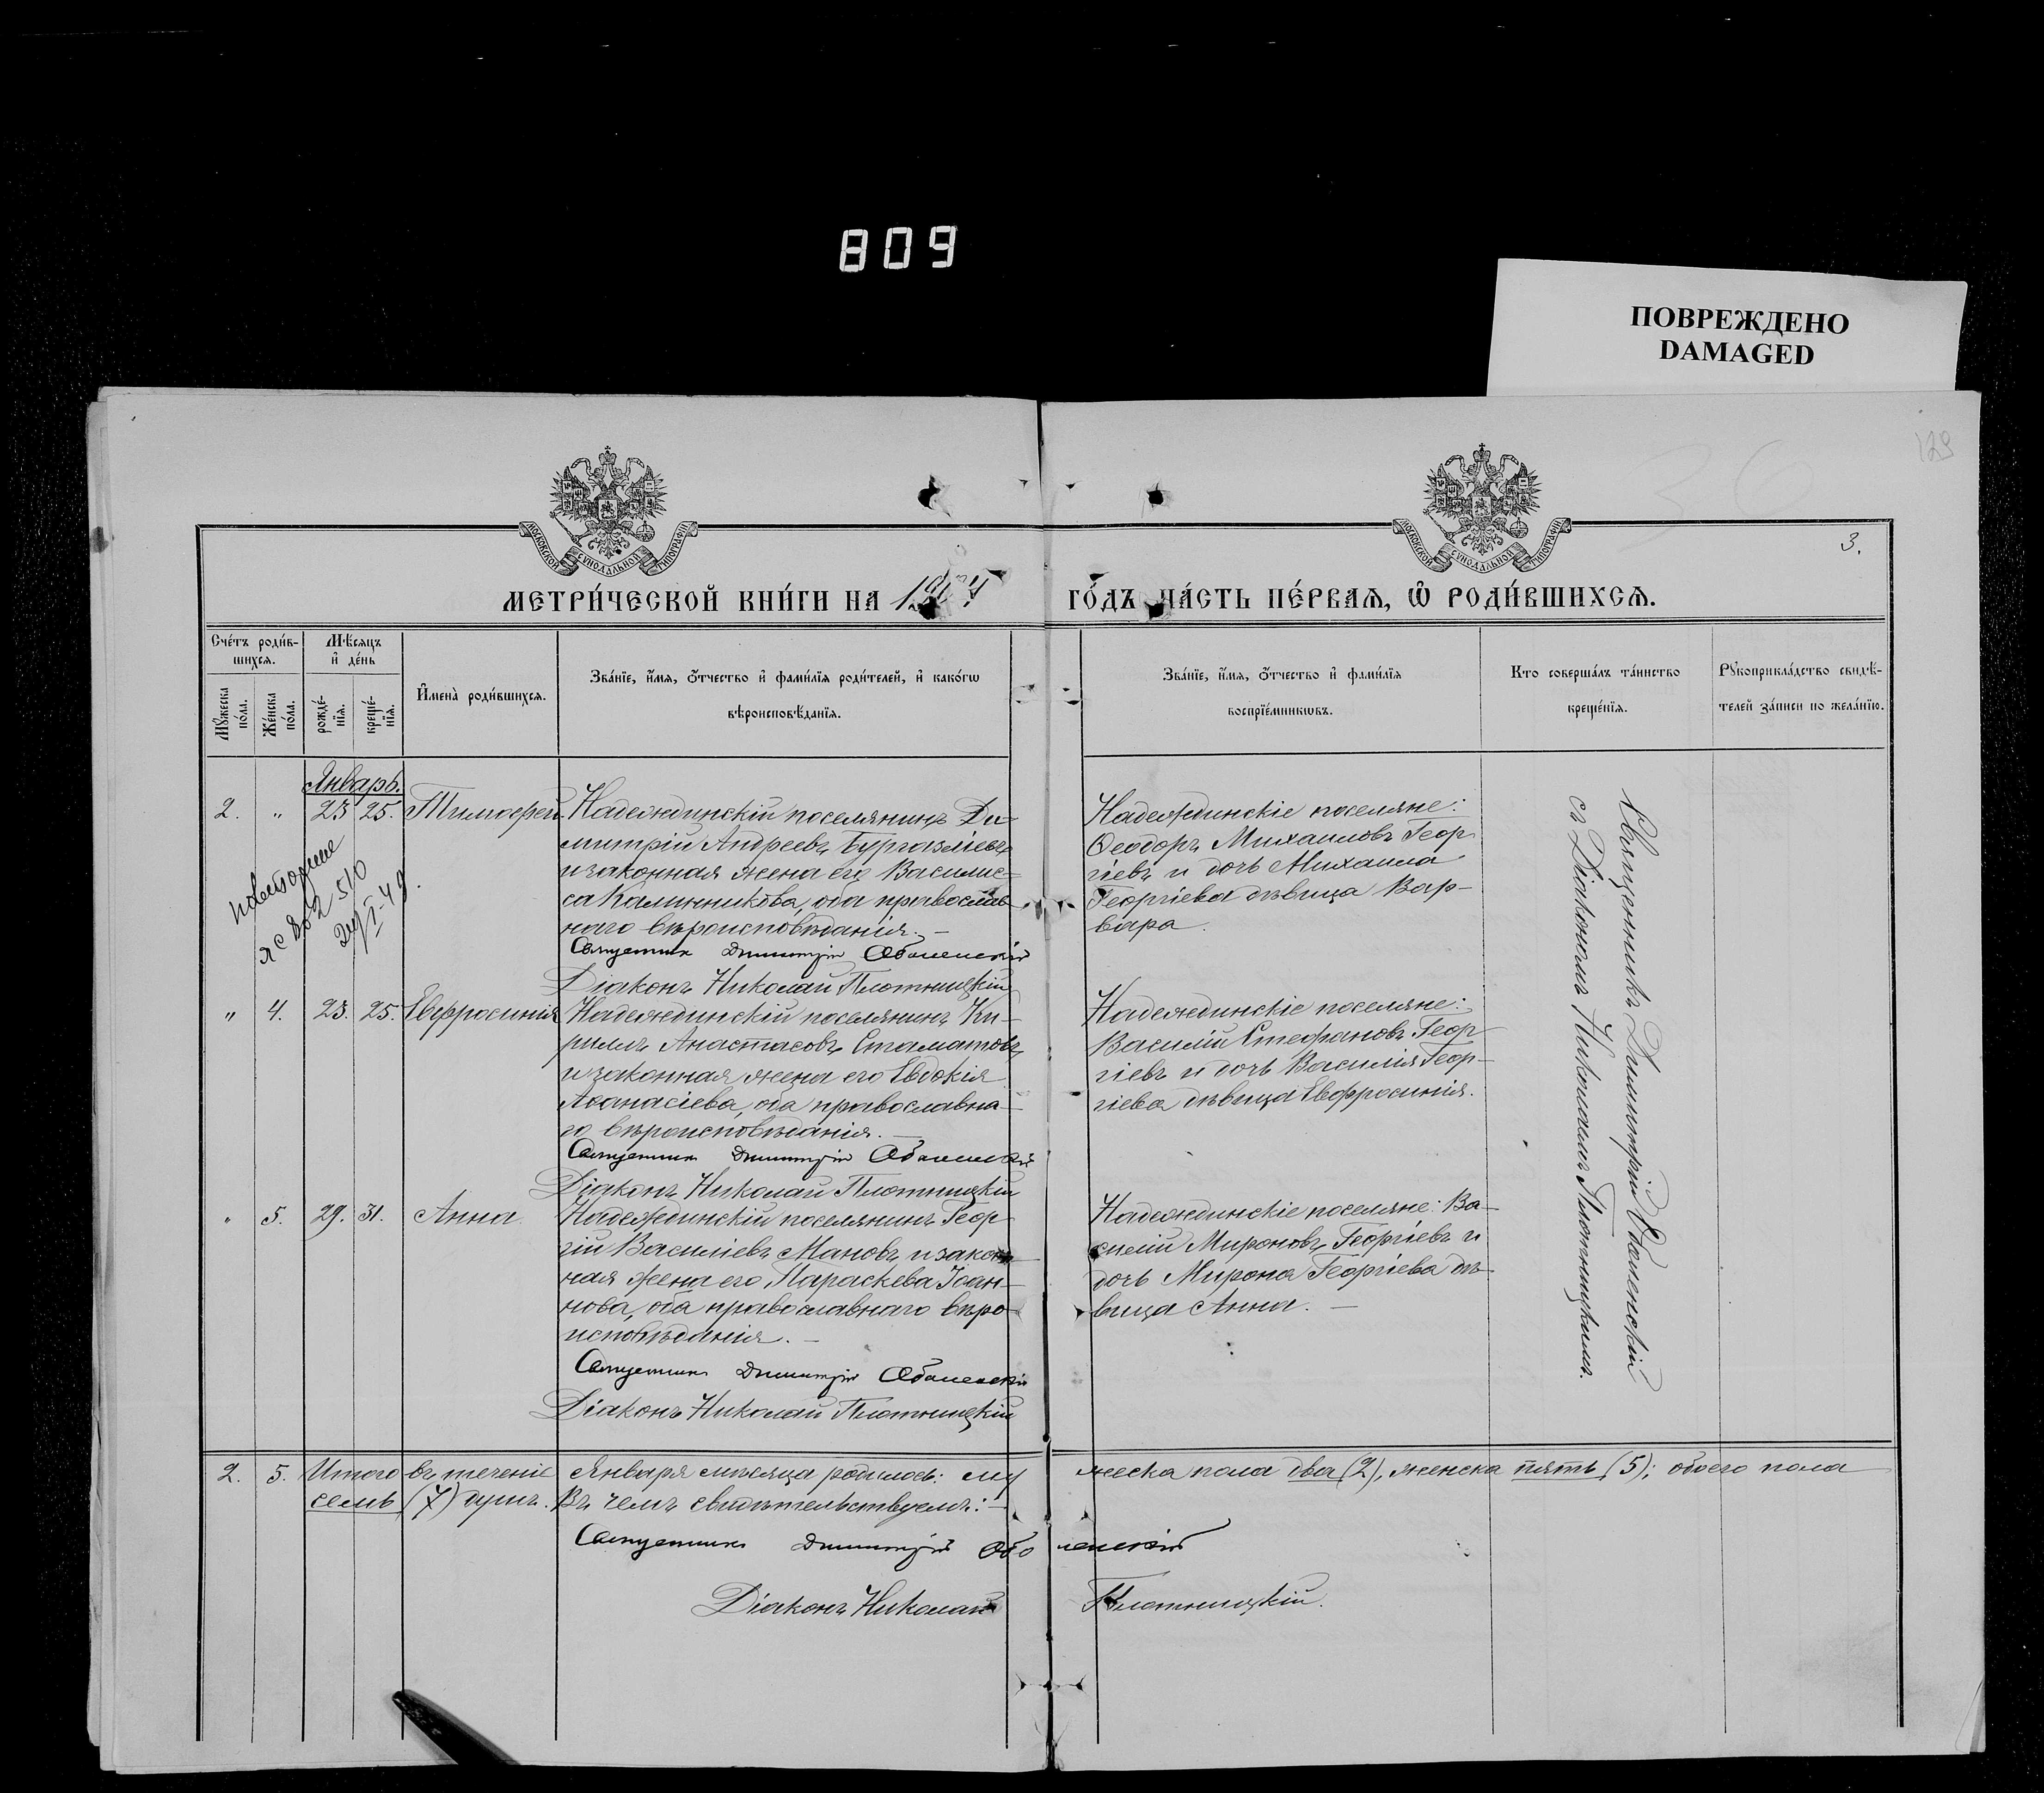 809
ПОВРЕЖДЕНО
DAMAGED
129
36
3.
МОСКОВСКОЙ СѴНОДАЛЬНОЙ ТИПОГРАФІИ
МОСКОВСКОЙ СѴНОДАЛЬНОЙ ТИПОГРАФІИ
МЕТРИ́ЧЕСКОЙ КНИ́ГИ НА 1907
ГО́ДЪ ЧА́СТЬ ПЕ́РВАѦ, Ѡ҆ РОДИ́ВШИХСѦ.
Сче́тъ роди́в-
шихсѧ.
Мꙋ́жеска по́ла.
Же́нска по́ла.
Мѣ́сяцъ
и҆ де́нь
рожде́-
нїѧ.
креще́-
нїѧ.
И҆мена̀ роди́вшихсѧ.
Зва́нїе, и҆́мѧ, ѻ҆́тчество и҆ фами́лїѧ роди́телей, и҆ како́гѡ
вѣроисповѣ́данїѧ.
Зва́нїе, и҆́мѧ, ѻ҆́тчество и҆ фами́лїѧ
воспрїе́мникѡвъ.
Кто соверша́лъ та́инство
креще́нїѧ.
Рꙋкоприкла́дство свидѣ́-
телей за́писи по жела́нїю.
Январь.
2. " 23 25. Тимоѳей.
Надеждинскій поселянинъ Ди-
митрій Андреевъ Бургазліевъ
и законная жена его Василис-
са Калинникова, оба православ-
наго вѣроисповѣданія. –
Священникъ Димитрій Оболенскій
Діаконъ Николай Плотницкій
Надеждинскіе поселяне:
Ѳеодоръ Михаиловъ Геор
гіевъ и дочь Михаила
Георгіева дѣвица Вар-
вара.
повторное
510
" 4. 23. 25. Евфросинія
Надеждинскій поселянинъ Ки-
риллъ Анастасовъ Стаматовъ
и законная жена его Евдокія
Аѳанасіева, оба православна-
го вѣроисповѣданія. –
Священникъ Димитрій Оболенскій
Діаконъ Николай Плотницкій
Надеждинскіе поселяне:
Василій Стефановъ Геор-
гіевъ и дочь Василія Геор-
гіева дѣвица Евфросинія.
" 5. 29. 31. Анна
Надеждинскій поселянинъ Геор
гій Василіевъ Мановъ и закон-
ная жена его Параскева Іоан-
нова, оба православнаго вѣро-
исповѣданія. –
Священникъ Димитрій Оболенскій
Діаконъ Николай Плотницкій
Надеждинскіе поселяне: Ва-
силій Мироновъ Георгіевъ и
дочь Мирона Георгіева дѣ-
вица Анна. –
Священникъ Димитрій Оболенскій
съ Діакономъ Николаемъ Плотницкимъ.
2. 5. Итого въ теченіе Января мѣсяца родилось: му жеска пола два (2), женска пять (5); обоего пола
семь (7) душъ. Въ чемъ свидѣтельствуемъ: –
Священникъ Димитрій Оболенскій
Діаконъ Николай Плотницкій.